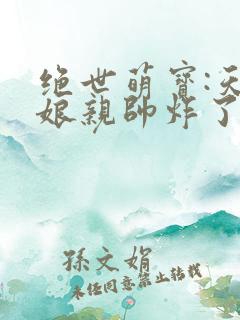 绝世萌寶:天
娘親帥炸了
孫文娟
未经同意禁止转载